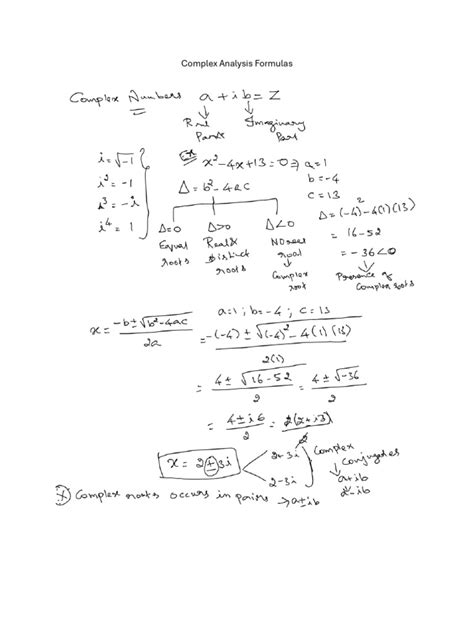 Complex Analysis Formulas
Complex Numbers a + i b = Z
Real Part
Imaginary Part
i = √-1
i² = -1
i³ = -i
i⁴ = 1
Ex x² - 4x + 13 = 0 ⇒ a = 1
b = -4
c = 13
Δ = b² - 4ac
Δ = (-4)² - 4(1)(13)
= 16 - 52
= -36 < 0
Presence of Complex roots
Δ=0 Δ>0 Δ<0
Equal roots
Real & distinct roots
NO real
Complex root
a=1 ; b=-4 ; c=13
x = -b ± √b² - 4ac / 2a = -(-4) ± √(-4)² - 4(1)(13) / 2(1)
= 4 ± √16 - 52 / 2 = 4 ± √-36 / 2
= 4 ± i6 / 2 = 2(2 ± i3) / 2
x = 2 ± 3i
2 + 3i
2 - 3i
Complex Conjugates
a + ib
a - ib
Complex roots occurs in pairs → a ± ib